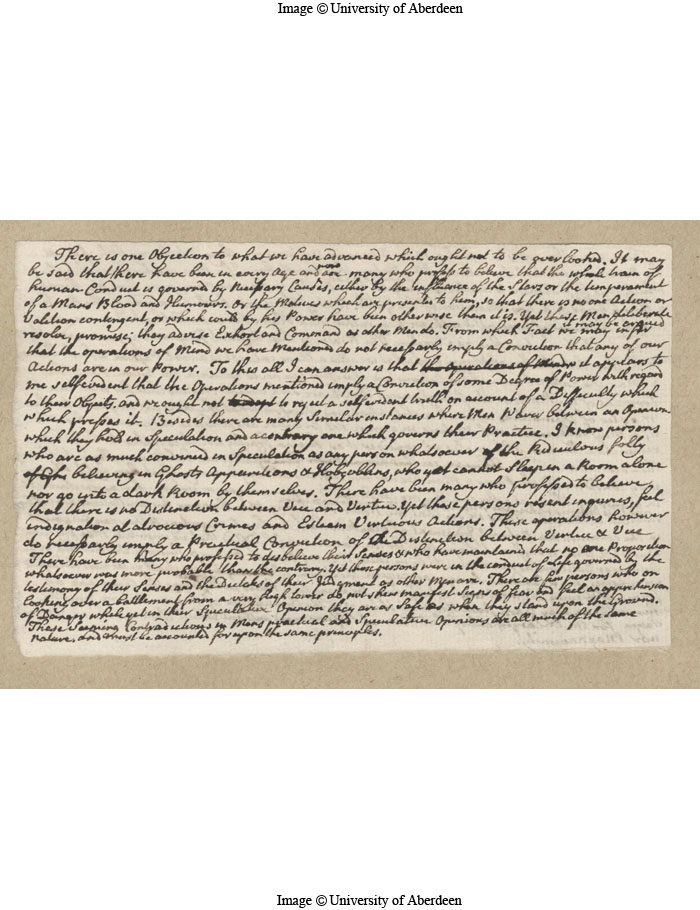 Image © University of Aberdeen
There is one Objection to what we have advanced which ought not to be overlooked. It may
be said that there have been in every age and now are many who profess to believe that the whole train of
human Conduct is governed by Necessary Causes, either by the influence of the Stars or the temperament
of a Mans Blood and Humours. Or the Motives which are presented to him, so that there is no one Action or
Volition contingent, or which could by his Power have been otherwise than it is. Yet these Men deliberate
resolve, promise; they advise Exhort and Command as other Men do. From which Fact it may be argued we may infer
that the operations of Mind we have Mentiond do not necessarily imply a Conviction that any of our
Actions are in our Power. To this all I can answer is that the operations of Mind it appears to
me selfevident that the Operations mentioned imply a Conviction of some Degree of Power with regard
to their Objects, and we ought not to reject a selfevident truth on account of a Difficulty which
which presses it. Besides there are many Similar instances where Men Waver between an Opinion
which they hold in Speculation and a contrary one which governs their Practice. I know persons
who are as much convinced in Speculation as any person whatsoever of the Ridiculous folly
of believing in Ghosts Apparitions & Hobgoblins, who yet cannot Sleep in a Room alone
nor go into a dark Room by themselves. There have been many who professed to believe
that there is no Distinction between Vice and Vertue. Yet those persons resent injuries, feel
indignation at atrocious Crimes and Esteem Virtuous Actions. These operations however
do necessarly imply a Practical Conviction of the Distinction between Vertue & Vice
There have been Many who professed to disbelieve their Senses & who have maintaind that no one Proposition
whatsoever was more probable than the contrary. Yet those persons were in the conduct of Life governed by the
testimony of their Senses and the Dictates of their Judgment as other Men are. There are few persons who on
looking over a battlement from a very high tower do not shew manifest Signs of fear and feel an apprehension
of Danger while yet in their Speculative Opinion they are as Safe as when they stand upon the Ground.
These Seeming Contradictions in Mens practical and Speculative Opinions are all much of the same
nature, and must be accounted for upon the same principles.
Image © University of Aberdeen